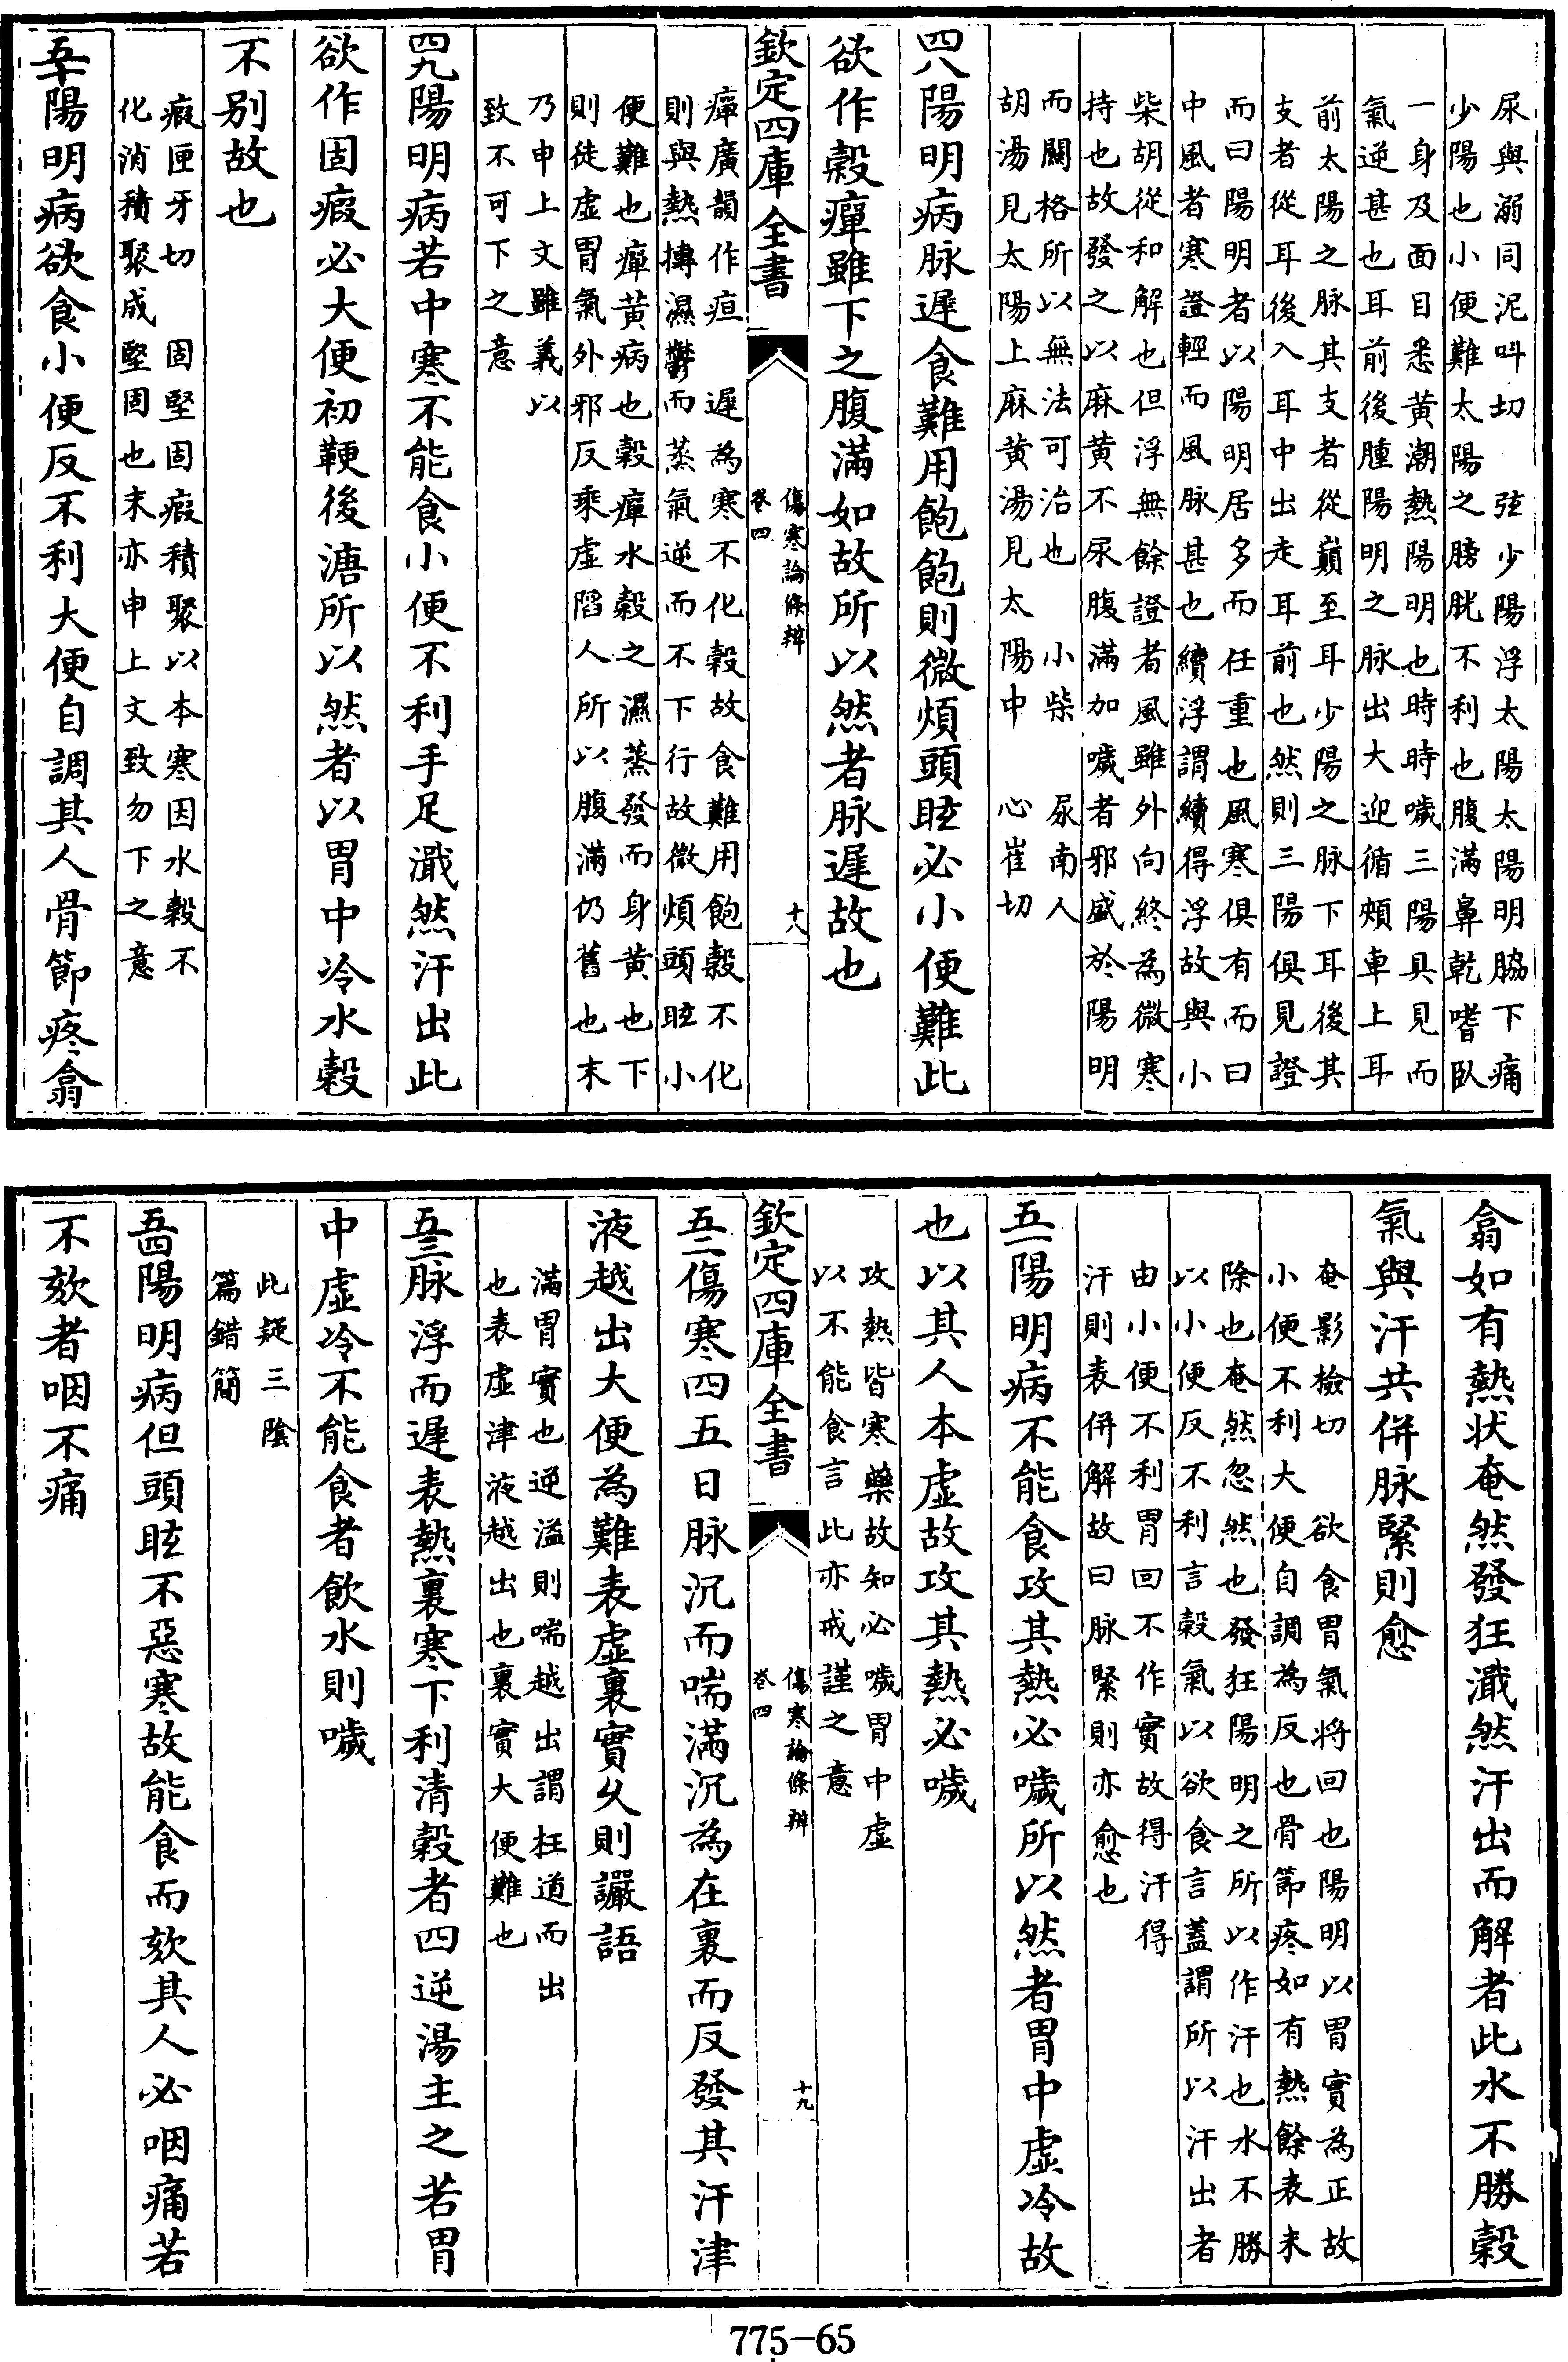 尿與溺同泥呌切　弦少陽浮太陽太陽明脇下痛
少陽也小便難太陽之膀胱不利也腹滿鼻乾嗜臥
一身及面目悉黄潮熱陽明也時時噦三陽具見而
氣逆甚也耳前後腫陽明之脉出大迎循頰車上耳
前太陽之脉其支者從巔至耳少陽之脉下耳後其
支者從耳後入耳中出走耳前也然則三陽俱見證
而曰陽明者以陽明居多而任重也風寒俱有而曰
中風者寒證輕而風脉甚也續浮謂續得浮故與小
柴胡從和解也但浮無餘證者風雖外向終為微寒
持也故發之以麻黄不尿腹滿加噦者邪盛於陽明
而關格所以無法可治也　小柴　尿南人
胡湯見太陽上麻黄湯見太陽中　心崔切
四八陽明病脉遲食難用飽飽則微煩頭眩必小便難此
欲作榖癉雖下之腹滿如故所以然者脉遲故也
欽定四庫全書
傷寒論條辨
卷四
十八
癉廣韻作疸　遲為寒不化穀故食難用飽穀不化
則與熱摶濕鬱而蒸氣逆而不下行故微煩頭眩小
便難也癉黄病也穀癉水穀之濕蒸發而身黄也下
則徒虛胃氣外邪反乘虛陷人所以腹滿仍舊也末
乃申上文雖義以
致不可下之意
四九陽明病若中寒不能食小便不利手足濈然汗出此
欲作固瘕必大便初鞕後溏所以然者以胃中冷水穀
不别故也
瘕匣牙切　固堅固瘕積聚以本寒因水穀不
化消積聚成堅固也末亦申上文致勿下之意
五十陽明病欲食小便反不利大便自調其人骨節疼翕
翕如有熱状奄然發狂濈然汗出而解者此水不勝穀
氣與汗共併脉緊則愈
奄影檢切　欲食胃氣将回也陽明以胃實為正故
小便不利大便自調為反也骨節疼如有熱餘表未
除也奄然忽然也發狂陽明之所以作汗也水不勝
以小便反不利言穀氣以欲食言蓋謂所以汗出者
由小便不利胃回不作實故得汗得
汗則表併解故曰脉緊則亦愈也
五一陽明病不能食攻其熱必噦所以然者胃中虛冷故
也以其人本虛故攻其熱必噦
攻熱皆寒藥故知必噦胃中虛
以不能食言此亦戒謹之意
欽定四庫全書
傷寒論條辨
卷四
十九
五二傷寒四五日脉沉而喘滿沉為在裏而反發其汗津
液越出大便為難表虛裏實乆則讝語
滿胃實也逆溢則喘越出謂枉道而出
也表虛津液越出也裏實大便難也
五三脉浮而遲表熱裏寒下利清穀者四逆湯主之若胃
中虛冷不能食者飲水則噦
此疑三陰
篇錯簡
五四陽明病但頭眩不惡寒故能食而欬其人必咽痛若
不欬者咽不痛
775-65